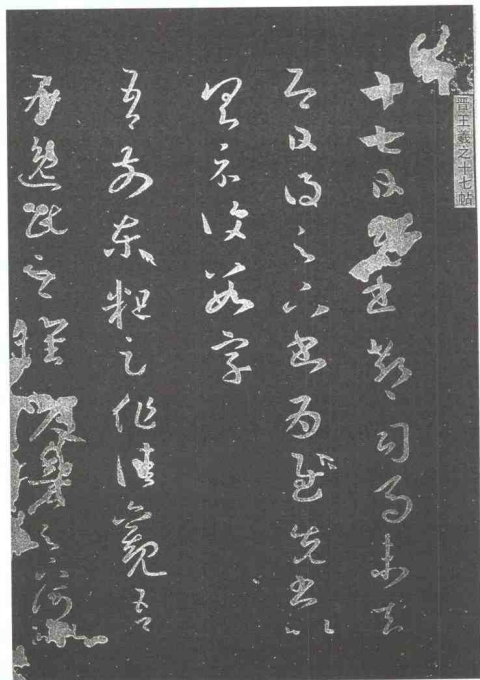 晉王羲之十七帖
十七日先書郗司馬未去
即日得足下書為慰先書以
具示復數字
吾前東粗足作佳觀吾
為逸民之懷久矣足下何以